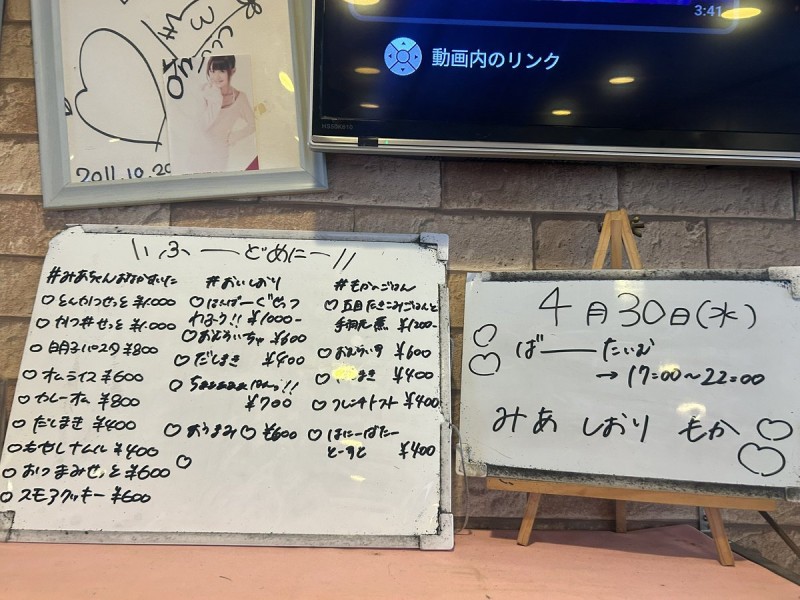 2011.10.20
3:41
動画内のリンク
HISENSE
\\ ふーどめにー //
#みあちゃんおなかすいた
♡とんかつせっと ¥1000
♡かつ丼せっと ¥1,000
♡明太パスタ ¥800
♡オムライス ¥600
♡カレーオム ¥800
♡だしまき ¥400
♡もやしナムル ¥400
♡おつまみせっと ¥600
♡スモアクッキー ¥600
#おいしおり
♡はんばーぐ
¥1000-
♡おむらいちゅ ¥600
♡だしまき ¥400
♡ちゃーはんっ!!
¥700
♡おつまみ♡ ¥600
♡
#もかのごはん
♡五目たきこみごはんと
手羽元煮 ¥1200-
♡おむらいす ¥600
♡だしまき ¥400
♡フレンチトースト ¥400
♡はにーばたー
とーすと ¥400
4月30日(水)
ばーたいむ
→ 17:00〜22:00
みあ しおり もか